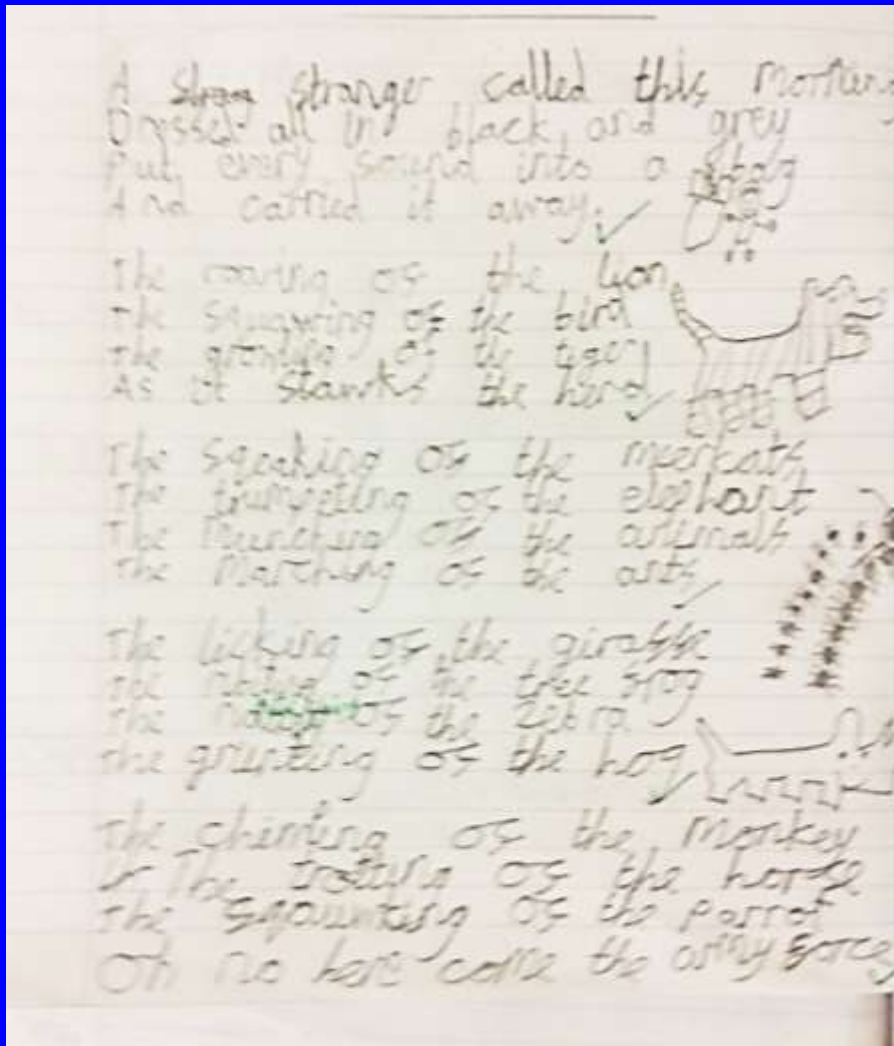 A stranger called this morning
Dressed all in black and grey
Put every sound into a bag
And carried it away.
The roaring of the lion
The squawking of the bird
The growling of the tiger
As it stawks the herd
The squeaking of the meercats
The trumpeting of the elephant
The munching of the animals
The marching of the ants
The licking of the giraffe
The of the tree frog
The of the zebra
The grunting of the hog
The of the monkey
The trotting of the horse
The of the parrot
Oh no here come the army force